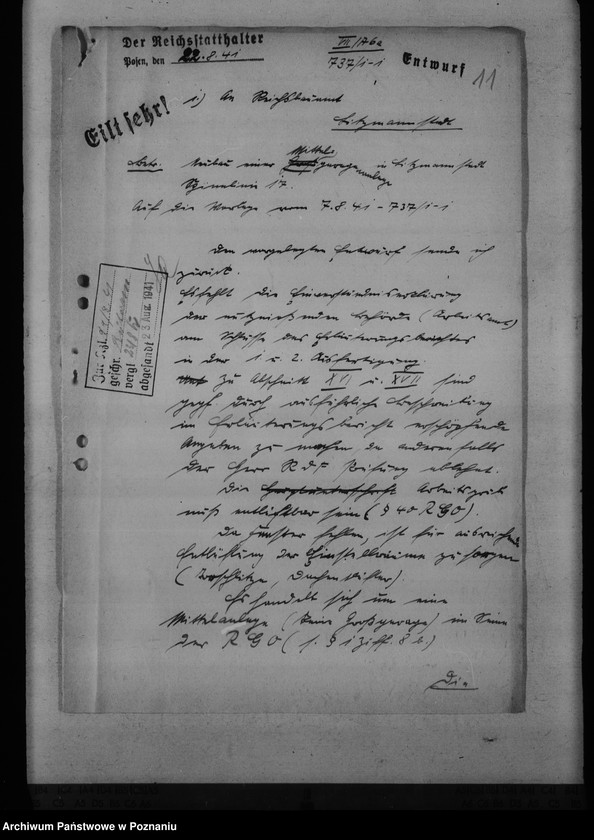 Der Reichsstatthalter
Posen, den 22.8.41
VII/76a
737/i-1
Entwurf
11
Eilt sehr!
1) An Reichsbauamt
Litzmannstadt
Betr. Neubau einer Mittelgaragenanlage in Litzmannstadt
Spinnlinie 17.
Auf die Vorlage vom 7.8.41 – 737/i-1
Den vorgelegten Entwurf sende ich
zurück.
Es fehlt die Einverständniserklärung
der nutznießenden Behörde (Arbeitsamt)
am Schlusse des Erläuterungsberichtes
in der 1 u. 2. Ausfertigung.
Zu Abschnitt XVI u. XVII sind
ggf. durch ausführliche Beschreibung
im Erläuterungsbericht erschöpfende
Angaben zu machen, da anderenfalls
der Herr RdF Prüfung ablehnt.
Die Arbeitsgrube
muß entlüftbar sein (§ 40 RGO).
Da Fenster fehlen, ist für ausreichende
Entlüftung der Einstellräume zu sorgen
Es handelt sich um eine
Mittelanlage (keine Großgarage) im Sinne
der RGO (s. § 1 Ziff. 8 b.)
Die
Zur Kzl.
geschr.
vergl.
abgesandt 23. Aug. 1941
Archiwum Państwowe w Poznaniu